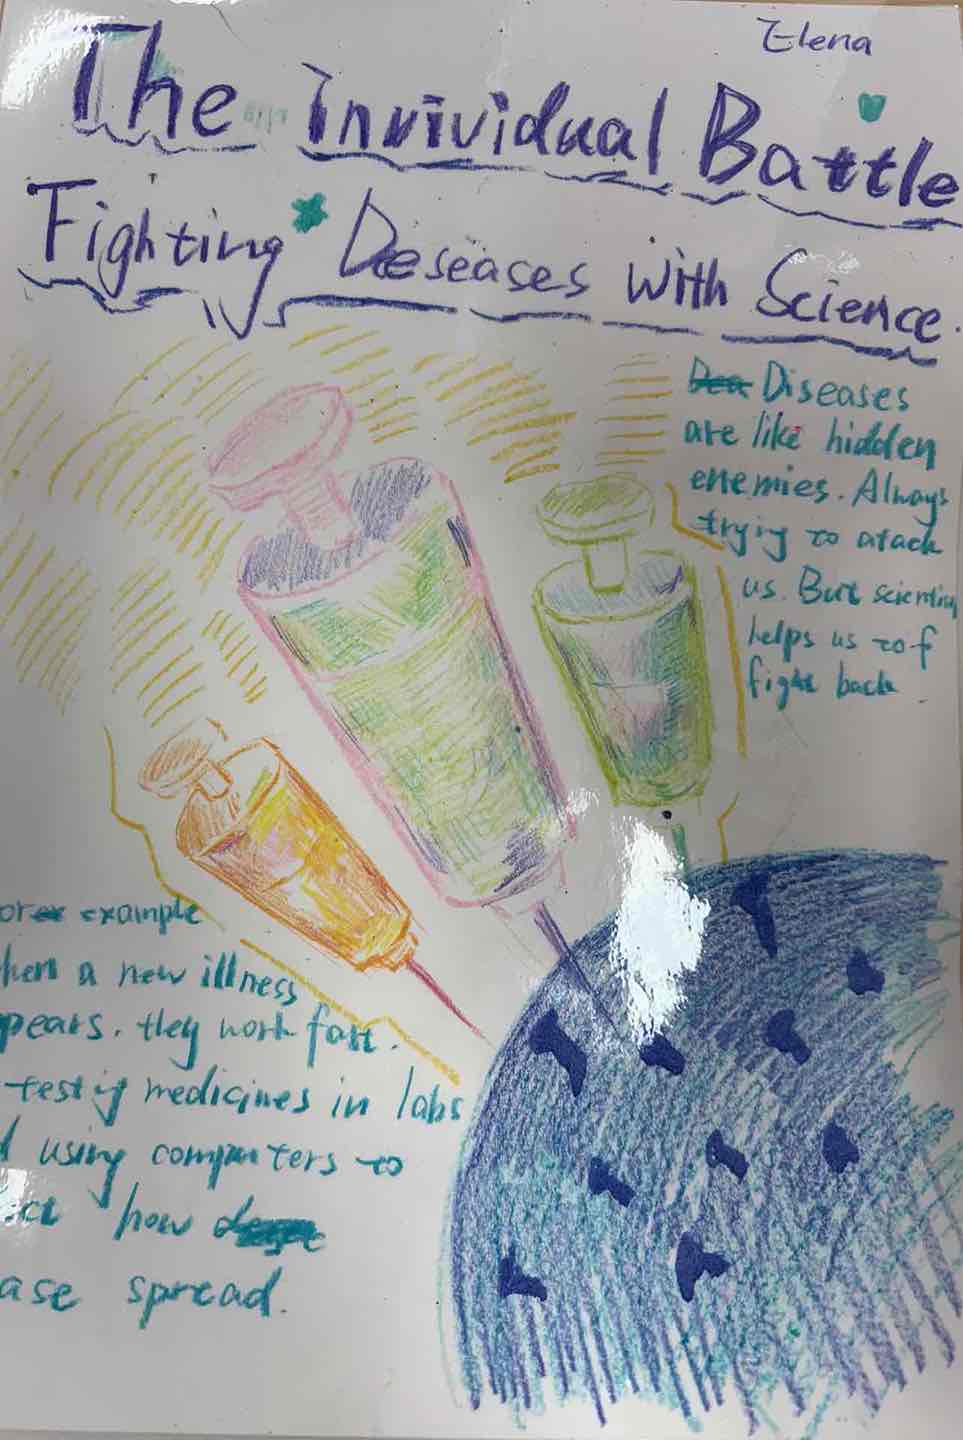 Elena
The Inrividual Battle
Fighting Deseases with Science.
Diseases
are like hidden
enemies. Always
trying to atack
us. But
helps us to f
fight back
example
a new illness
they work fast.
medicines in labs
using computers to
how
ase spread.